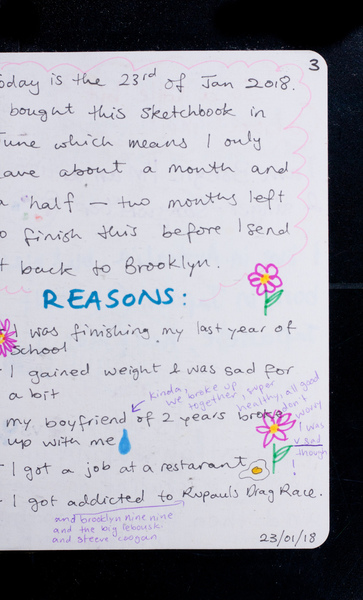 3
oday is the 23rd of Jan 2018.
bought this sketchbook in
une which means I only
ave about a month and
a half - two months left
o finish this before I send
t back to Brooklyn.
REASONS:
I was finishing my last year of
School
- I gained weight & was sad for
a bit
kinda, we broke up
together, super
healthy, all good
don't
worry
I was
v sad
though
!
my boyfriend of 2 years broke
up with me
- I got a job at a restarant
- I got addicted to Rupaul's Drag Race.
and brooklyn nine nine
and the big lebouski
and steeve coogan
23/01/18